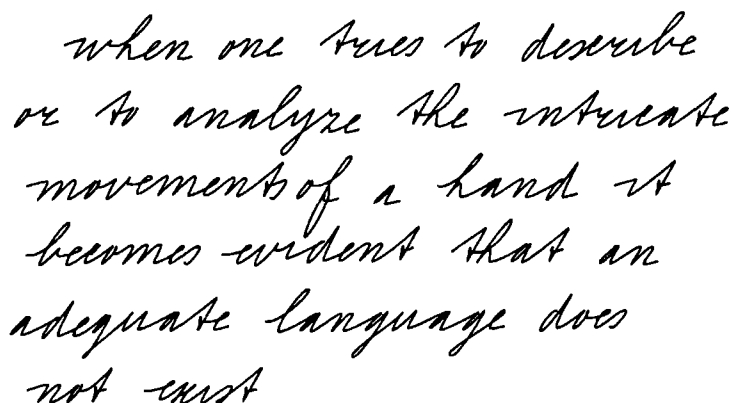 when one tries to describe
or to analyze the intricate
movements of a hand it
becomes evident that an
adequate language does
not exist